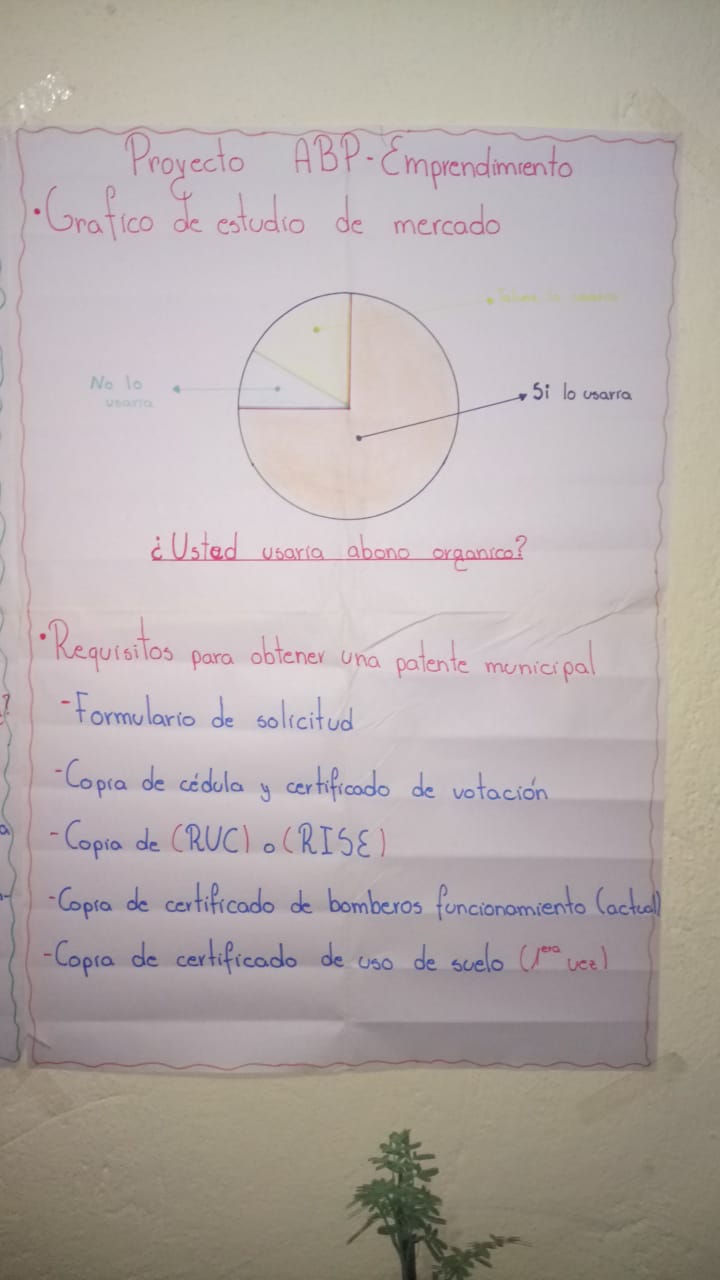 Proyecto ABP-Emprendimiento
•Grafico de estudio de mercado
Talvez lo usaria
No lo
usaria
Si lo usaria
¿Usted usaria abono organico?
•Requisitos para obtener una patente municipal
-Formulario de solicitud
-Copia de cédula y certificado de votación
-Copia de (RUC) o (RISE)
-Copia de certificado de bomberos funcionamiento (actual)
-Copia de certificado de uso de suelo (1era vez)
?
a